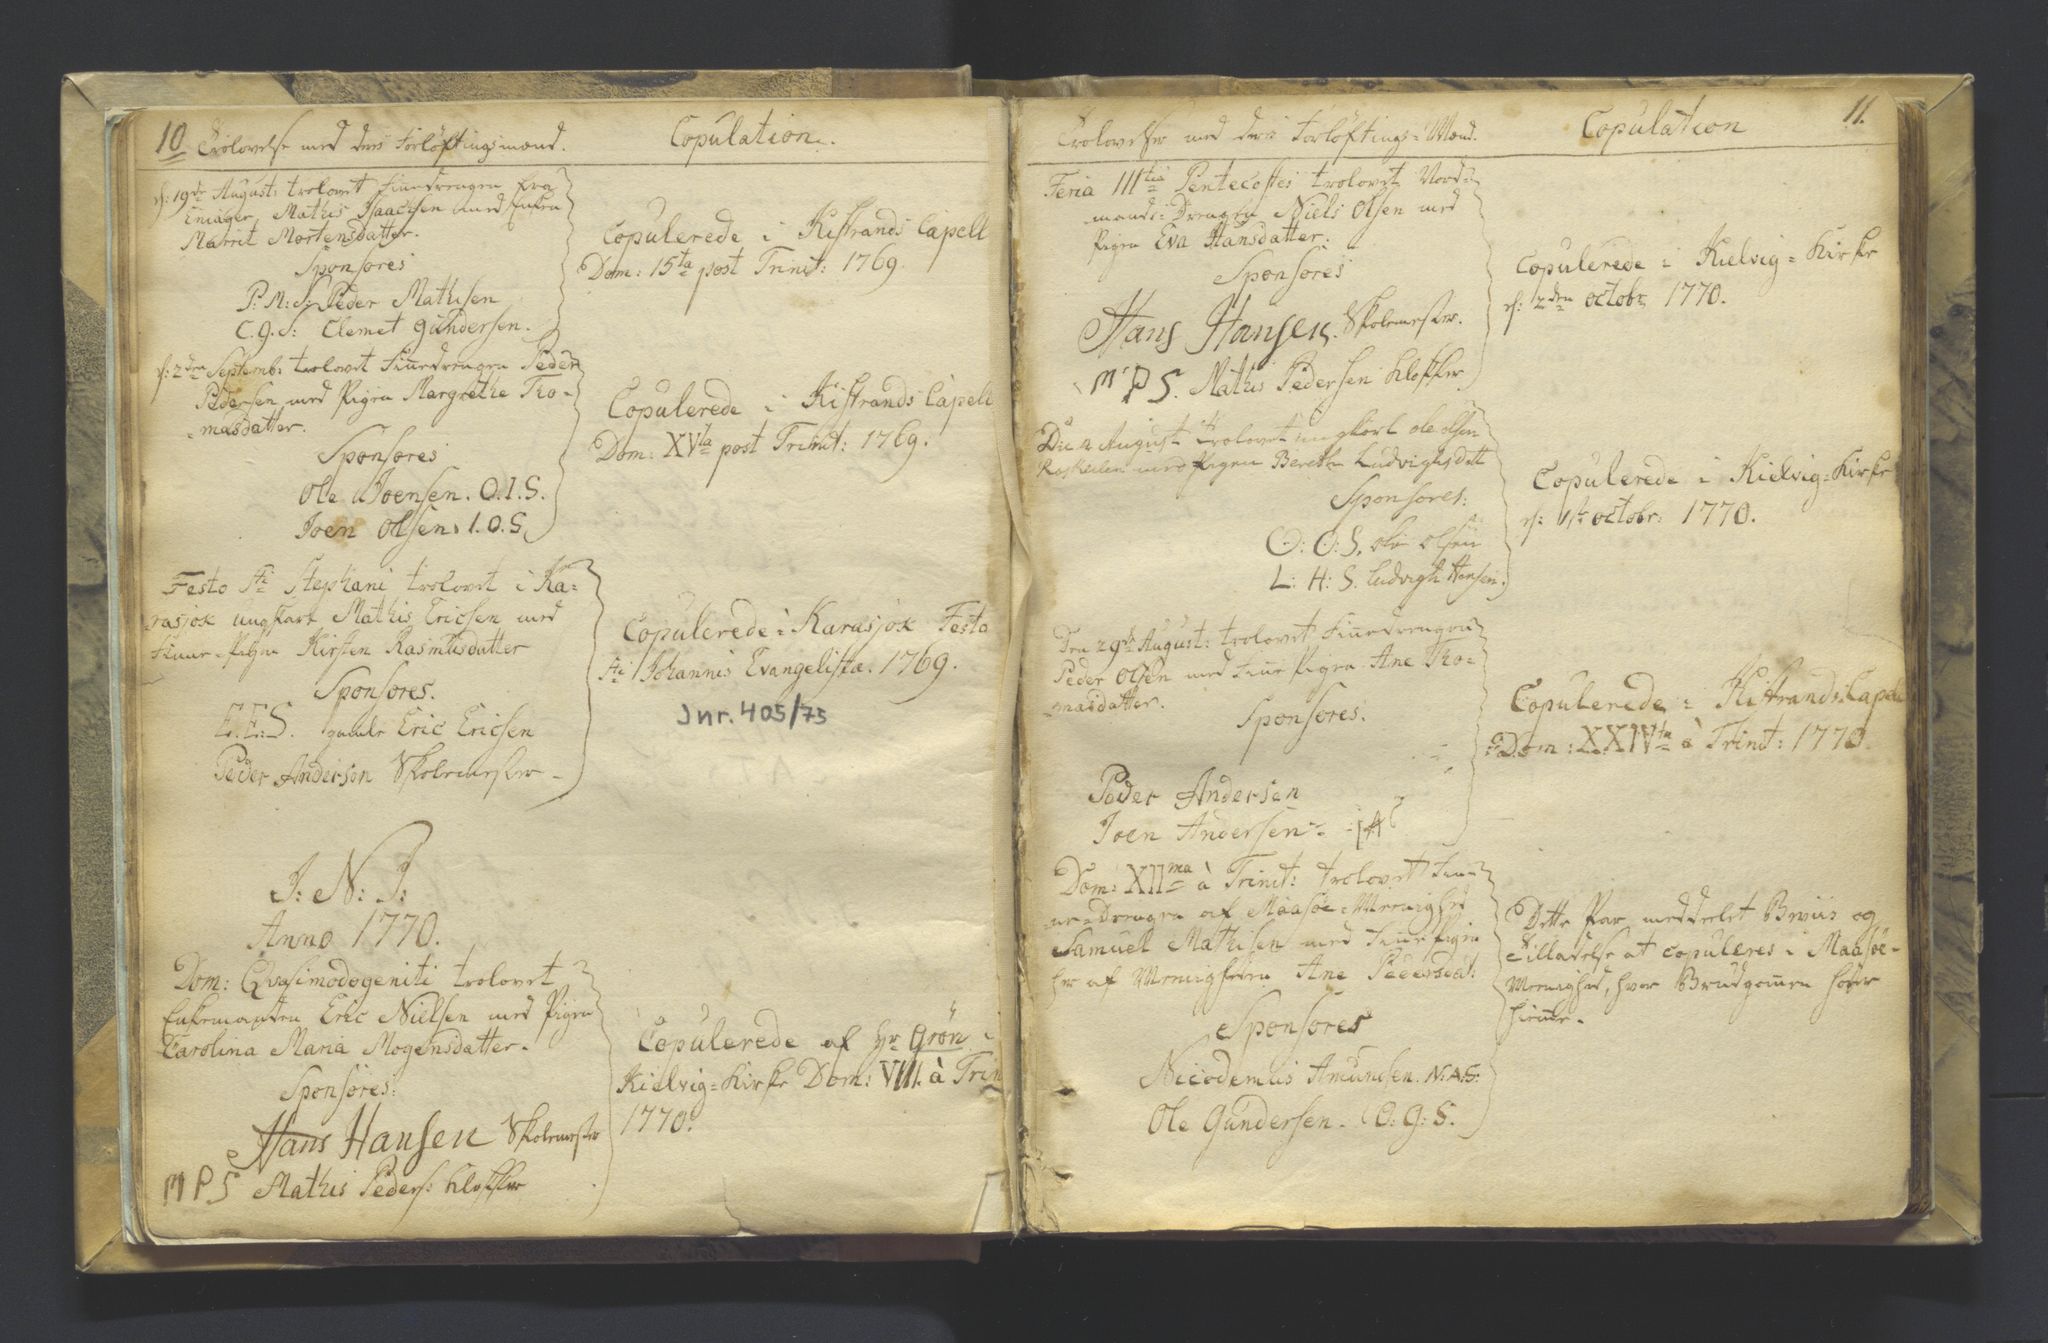 10
Trolovelse med deris Forløftingsmænd.
Copulation.
d: 19de August: trolovet Finnedrengen
Mathis Isaachsen med Enken
Marrit Mortensdatter.
Sponsores
P: M: S: Peder Mathisen
C. G. S: Clemet Gundersen.
Copulerede i Kistrands Capell
Dom: 15ta post Trinit: 1769.
d: 2den Septemb: trolovet Finnedrengen Peder
Pedersen med Pigen Margrethe Tho-
-masdatter.
Sponsores
Ole Joensen. O. I. S.
Joen Olsen. I. O. S.
Copulerede i Kistrands Capell
Dom: XVta post Trinit: 1769.
Festo Sti Stephani trolovet i Ka-
rasjok ungkarl Mathis Ericsen med
Finne-Pigen Kirsten Rasmusdatter
Sponsores.
E. E: S. gamle Eric Ericsen
Peder Andersen Skolemester
Copulerede i Karasjok Festo
Sti Johannis Evangelistæ. 1769.
Jnr. 405/75
J: N: J:
Anno 1770.
Dom: Qvasimodogeniti trolovet
Enkemanden Eric Nielsen med Pigen
Carolina Maria Mogensdatter.
Sponsores:
Hans Hansen Skolemester
M P S Mathis Peders: Klokker
Copulerede af Hr Grøn i
Kielvig-Kirke Dom: VIII. à Trin
1770.
11.
Trolovelse med deris Forløftings-Mænd.
Copulation
Feria IIItia Pentecostes trolovet Nord-
mands-Drengen Niels Olsen med
Pigen Eva Hansdatter.
Sponsores
Hans Hansen. Skolemester.
M P S. Mathis Pedersen Klokker
Copulerede i Kielvig-Kirke
d: 2den octobr 1770.
Die August trolovet ungkarl ole olsen
med Pigen Berethe Ludvighsdatt
Sponsores:
O: O: S. ole olsen
L: H: S. Ludvigh Hansen.
Copulerede i Kielvig-Kirke
d: 1ste octobr: 1770.
Den 29de August: trolovet Finnedrengen
Peder Olsen med Finne Pigen Ane Tho-
-masdatter.
Sponsores.
Peder Andersen
Joen Andersen
Copulerede i Kistrands Capell
Dom: XXIVta à Trinit: 1770.
Dom: XIIma à Trinit: trolovet Fin-
ne-Drengen af Maasøe-Menighed
Samuel Mathisen med Finne Pigen
her af Menigheden Ane Pedersdat:
Sponsores
Nicodemus Amundsen. N: A: S:
Ole Gundersen. O: G: S.
Dette Par meddeelt Beviis og
Tilladelse at copuleres i Maasøe-
Menighed, hvor Brudgomen hører
hiemme.